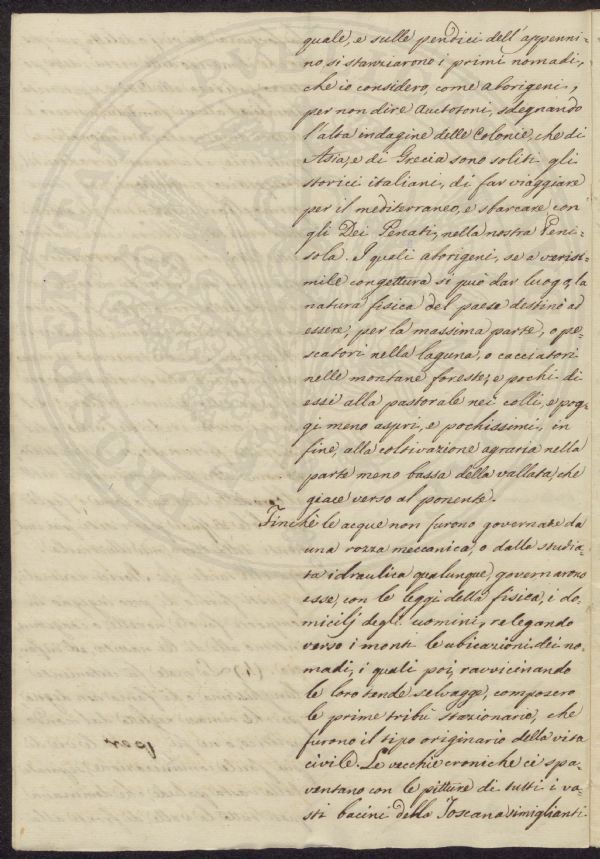 quale, e sulle pendici dell'appenni-
no, si stanziarono i primi nomadi,
che io considero, come aborigeni,
per non dire Auctotoni, sdegnando
l'alta indagine delle Colonie, che di
Asia, e di Grecia sono soliti gli
storici italiani, di far viaggiare
per il mediterraneo, e sbarcare con
gli Dei Penati, nella nostra Peni-
sola. I quali aborigeni, se a verisi-
mile congettura si può dar luogo, la
natura fisica del paese destinò ad
essere, per la massima parte, o pe-
scatori nella laguna, o cacciatori
nelle montane foreste; e pochi di
essi alla pastorale nei colli, e pog-
gi meno aspri, e pochissimi, in
fine, alla coltivazione agraria nella
parte meno bassa della vallata, che
giace verso al ponente.
Finchè le acque non furono governate da
una rozza meccanica, o dalla studia-
ta idraulica qualunque, governarono
esse, con le leggi della fisica, i do-
micilj degli uomini, relegando
verso i monti le ubicazioni dei no-
madi, i quali poi, ravvicinando
le loro tende selvagge, composero
le prime tribù stazionarie, che
furono il tipo originario della vita
civile. Le vecchie croniche ci spa-
ventano con le pitture di tutti i va-
sti bacini della Toscana simiglianti
per
PROSPERITATI PVBLICAE